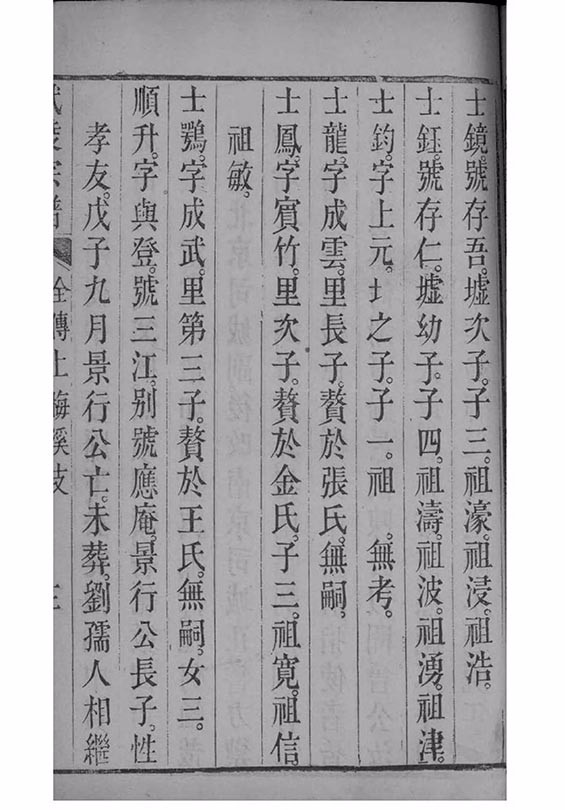 士鏡。號存吾。墟次子。子三。祖濠。祖浸。祖浩。
士鈺。號存仁。墟幼子。子四。祖濤。祖波。祖湧。祖津。
士鈞。字上元。之子。子一。祖 無考。
士龍。字成雲。里長子。贅於張氏。無嗣。
士鳳。字賓竹。里次子。贅於金氏。子三。祖寬。祖信。
祖敏。
士鶚。字成武。里第三子。贅於王氏。無嗣。女三。
順升。字與登。號三江。別號應庵。景行公長子。性
孝友。戊子九月景行公亡。未葬。劉孺人相繼
宗譜 全傳上 梅溪支